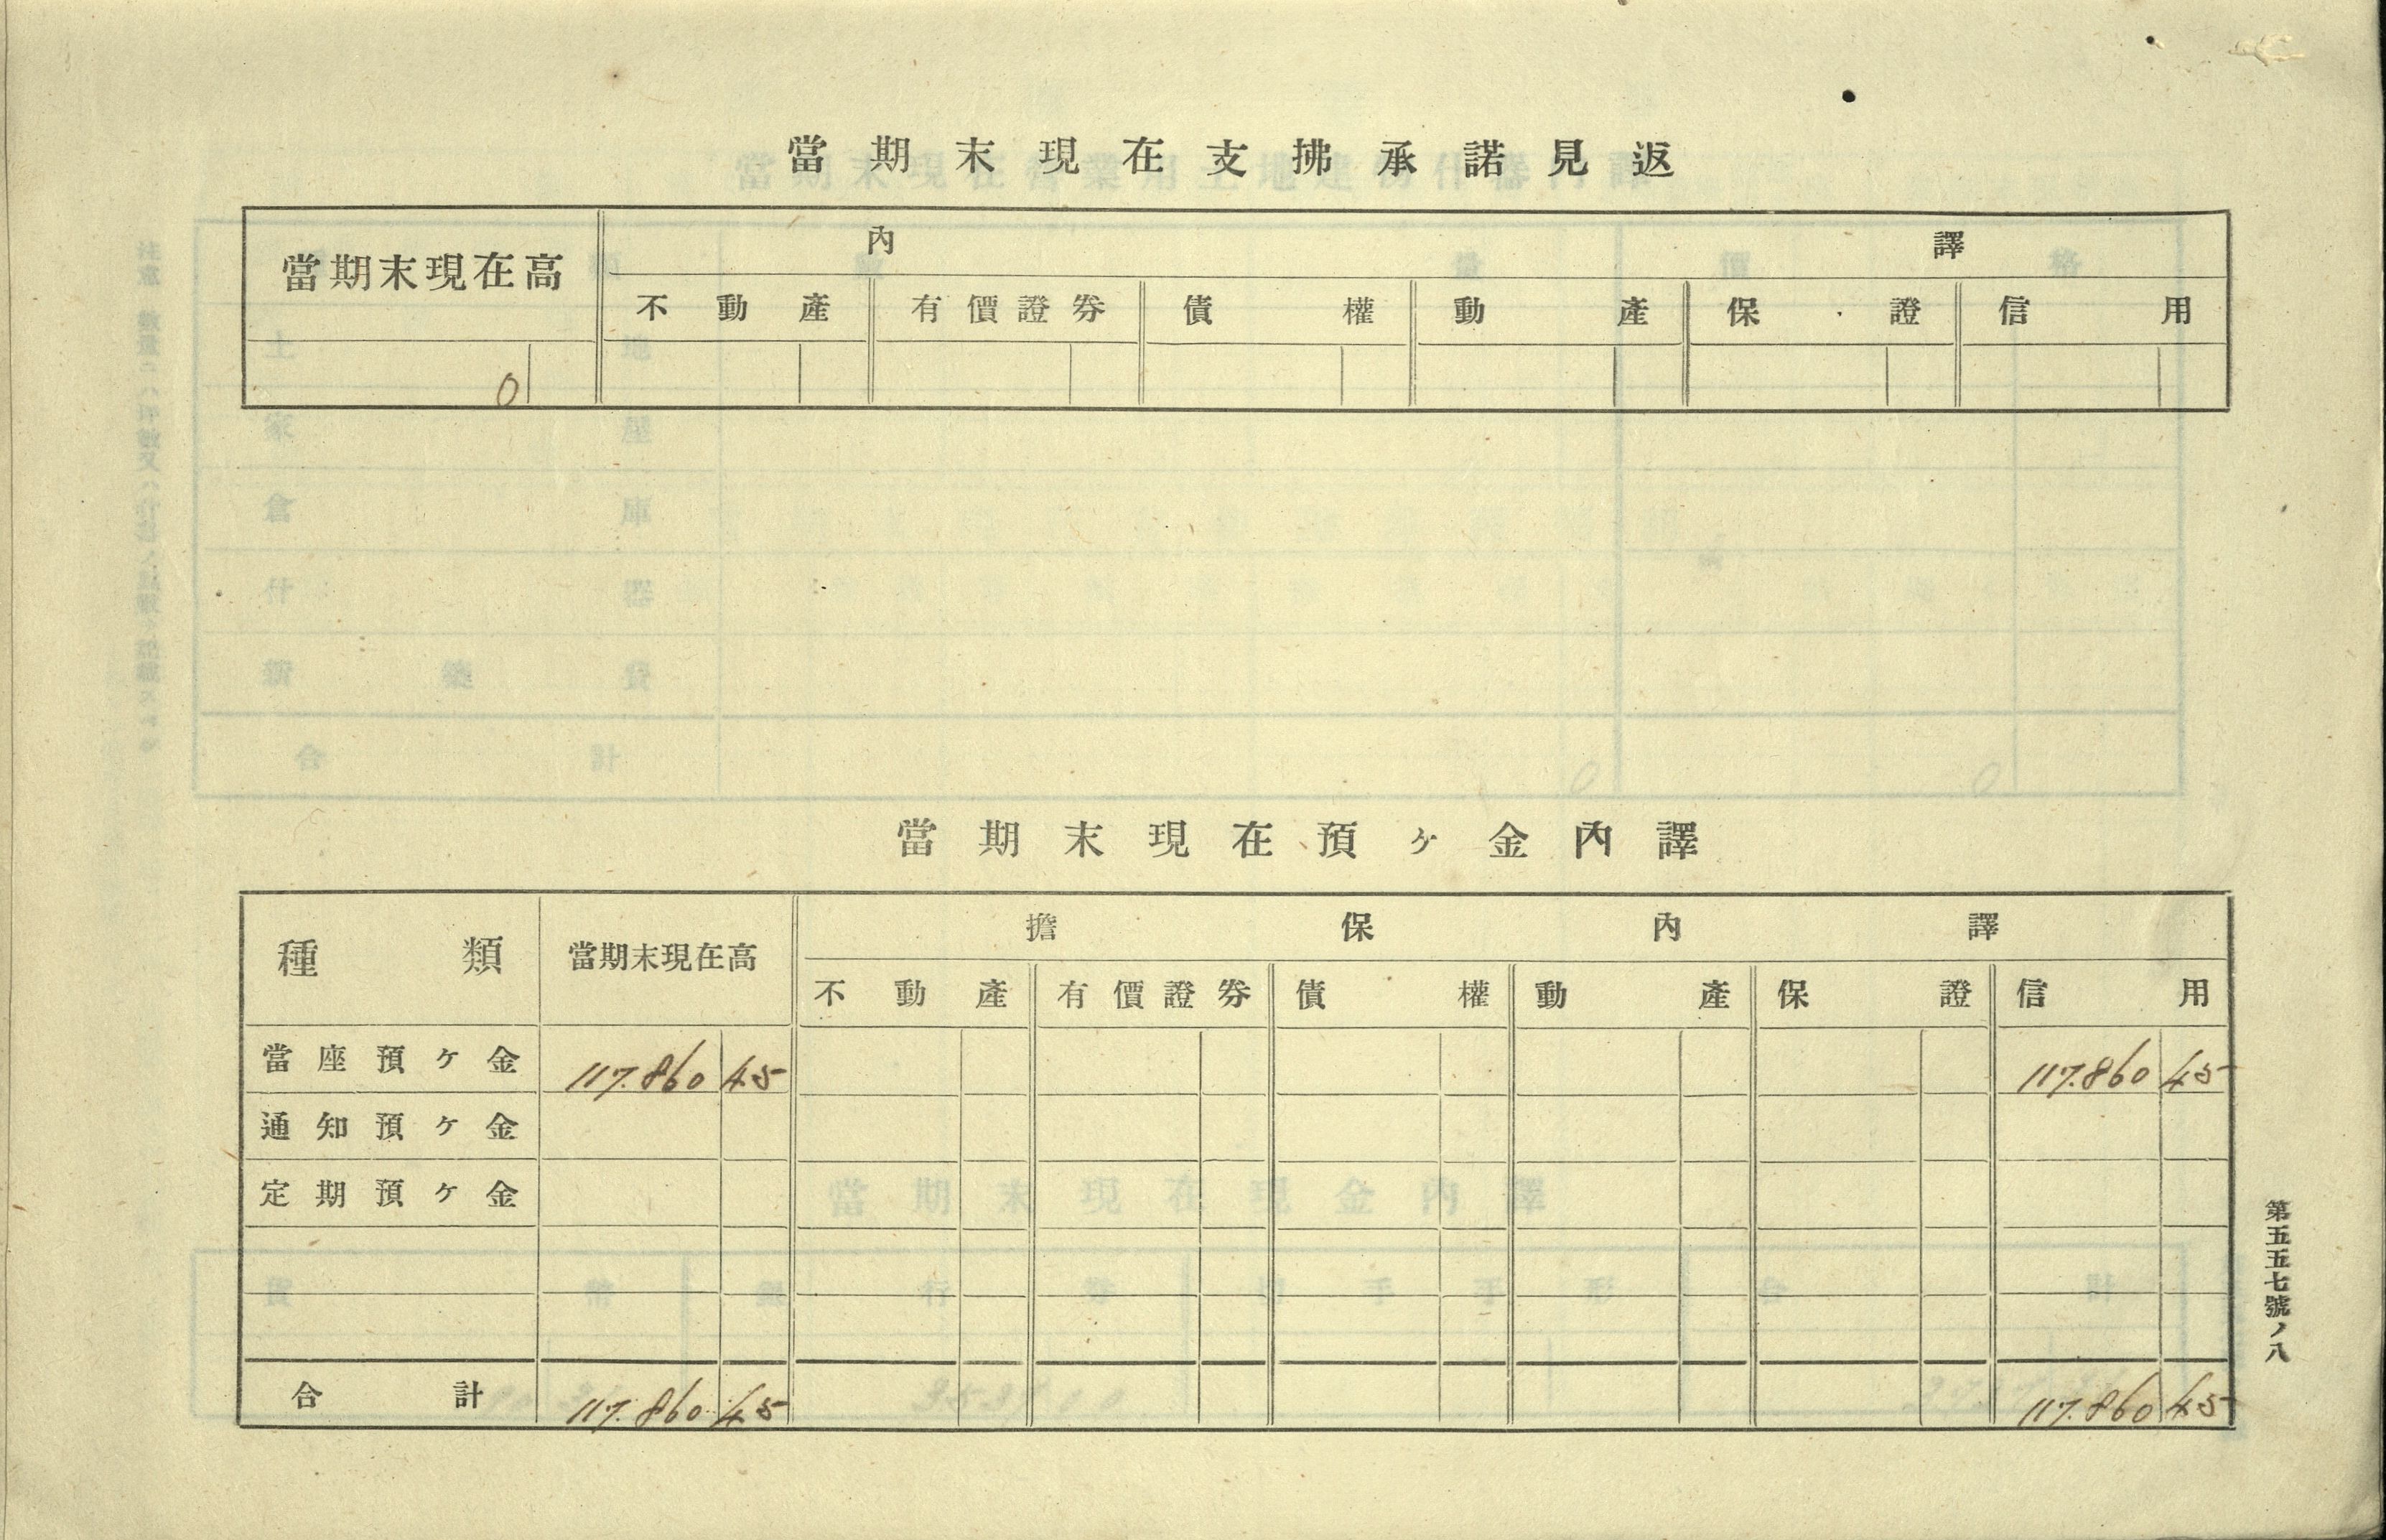 當期末現在支拂承諾見返
當期末現在高 內譯
不動產 有價證券 債權 動產 保證 信用
0
當期末現在預ヶ金內譯
種類 當期末現在高 擔保內譯
不動產 有價證券 債權 動產 保證 信用
當座預ヶ金 117.860 45 117.860 45
通知預ヶ金
定期預ヶ金
合計 117.860 45 117.860 45
第五五七號ノ八